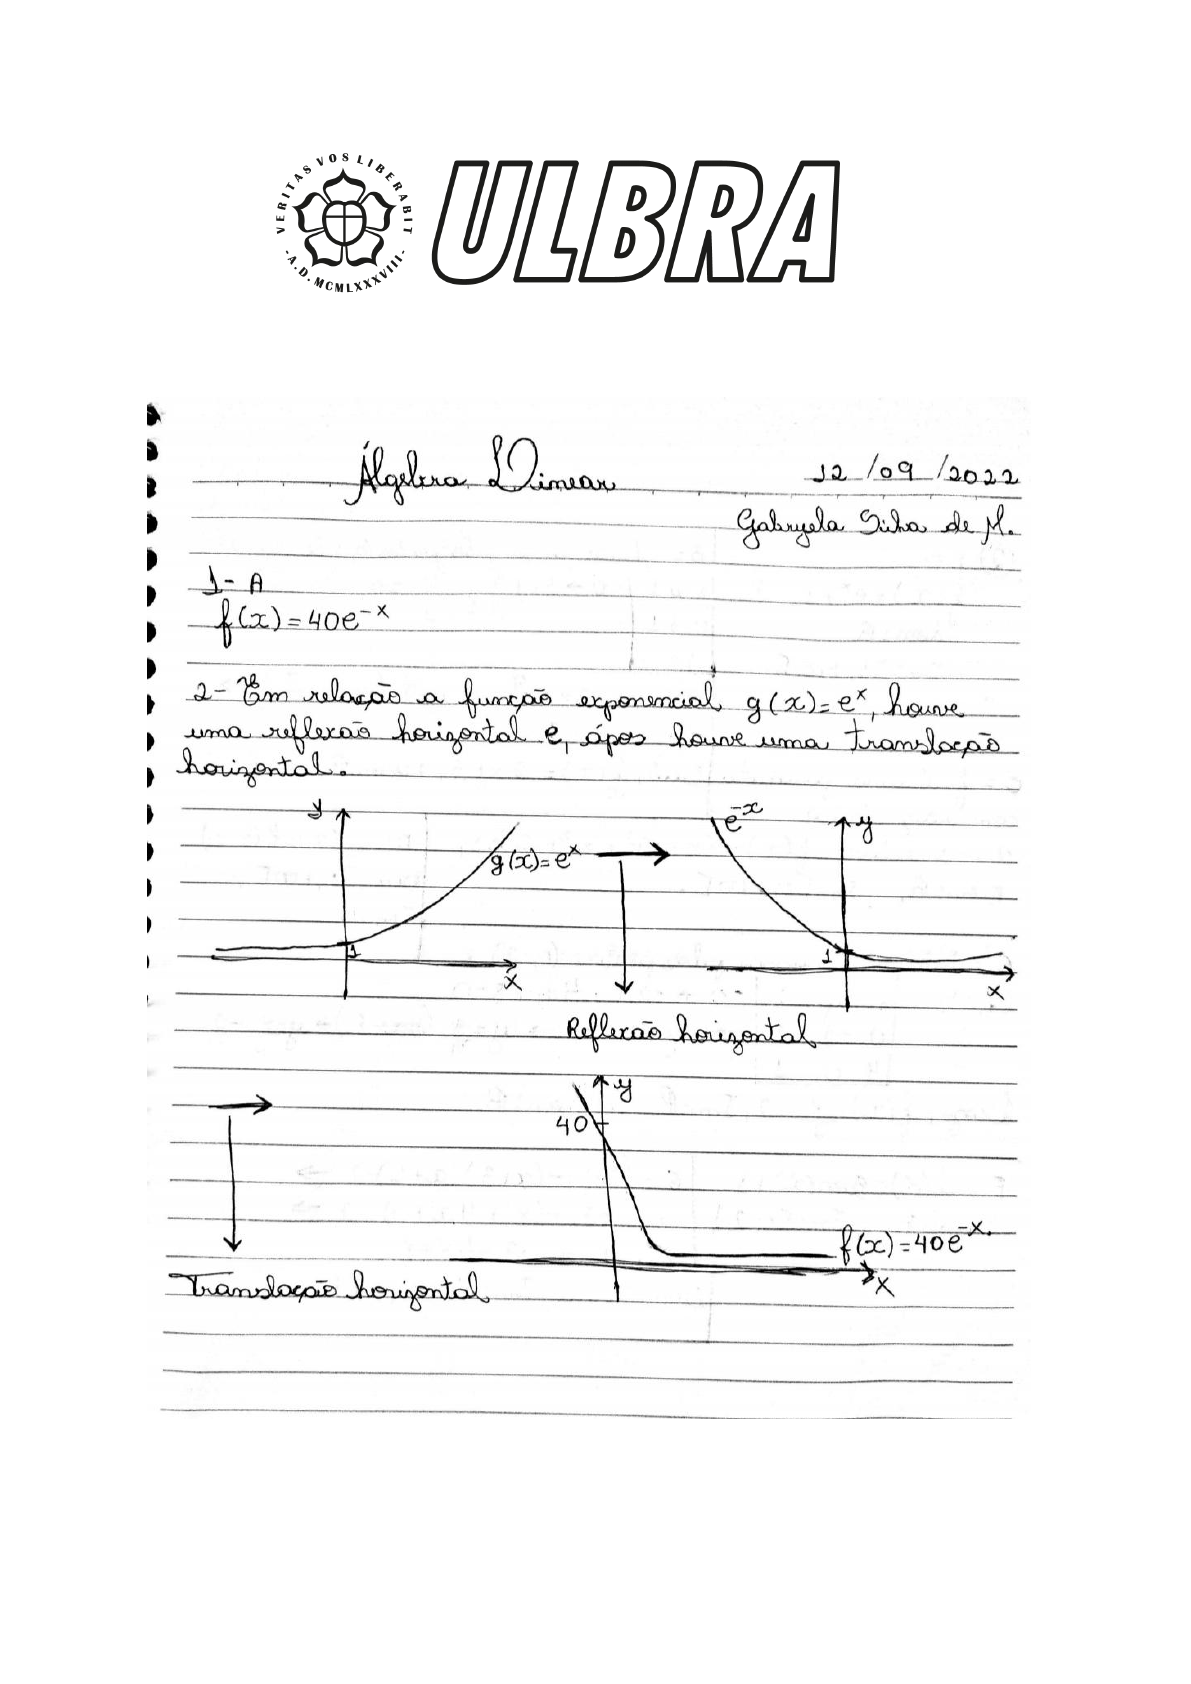 VERITAS VOS LIBERABIT
-A.D. MCMLXXXVIII-
ULBRA
Álgebra Linear 12/09/2022
Gabryela Silva de M.
1- A
f(x) = 40e^-x
2- Em relação a função exponencial g(x)= e^x, houve
uma reflexão horizontal e, ápos houve uma translação
horizontal.
y
g(x)= e^x
1
x
e^-x
y
1
x
Reflexão horizontal
y
40
f(x) = 40e^-x.
x
Translação horizontal